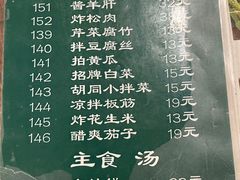 151 酱羊肝
152 炸松肉
139 芹菜腐竹
140 拌豆腐丝
141 拍黄瓜 13元
142 招牌白菜 15元
143 胡同小拌菜 13元
144 凉拌板筋 19元
145 炸花生米 13元
146 醋爽茄子 19元
主食 汤